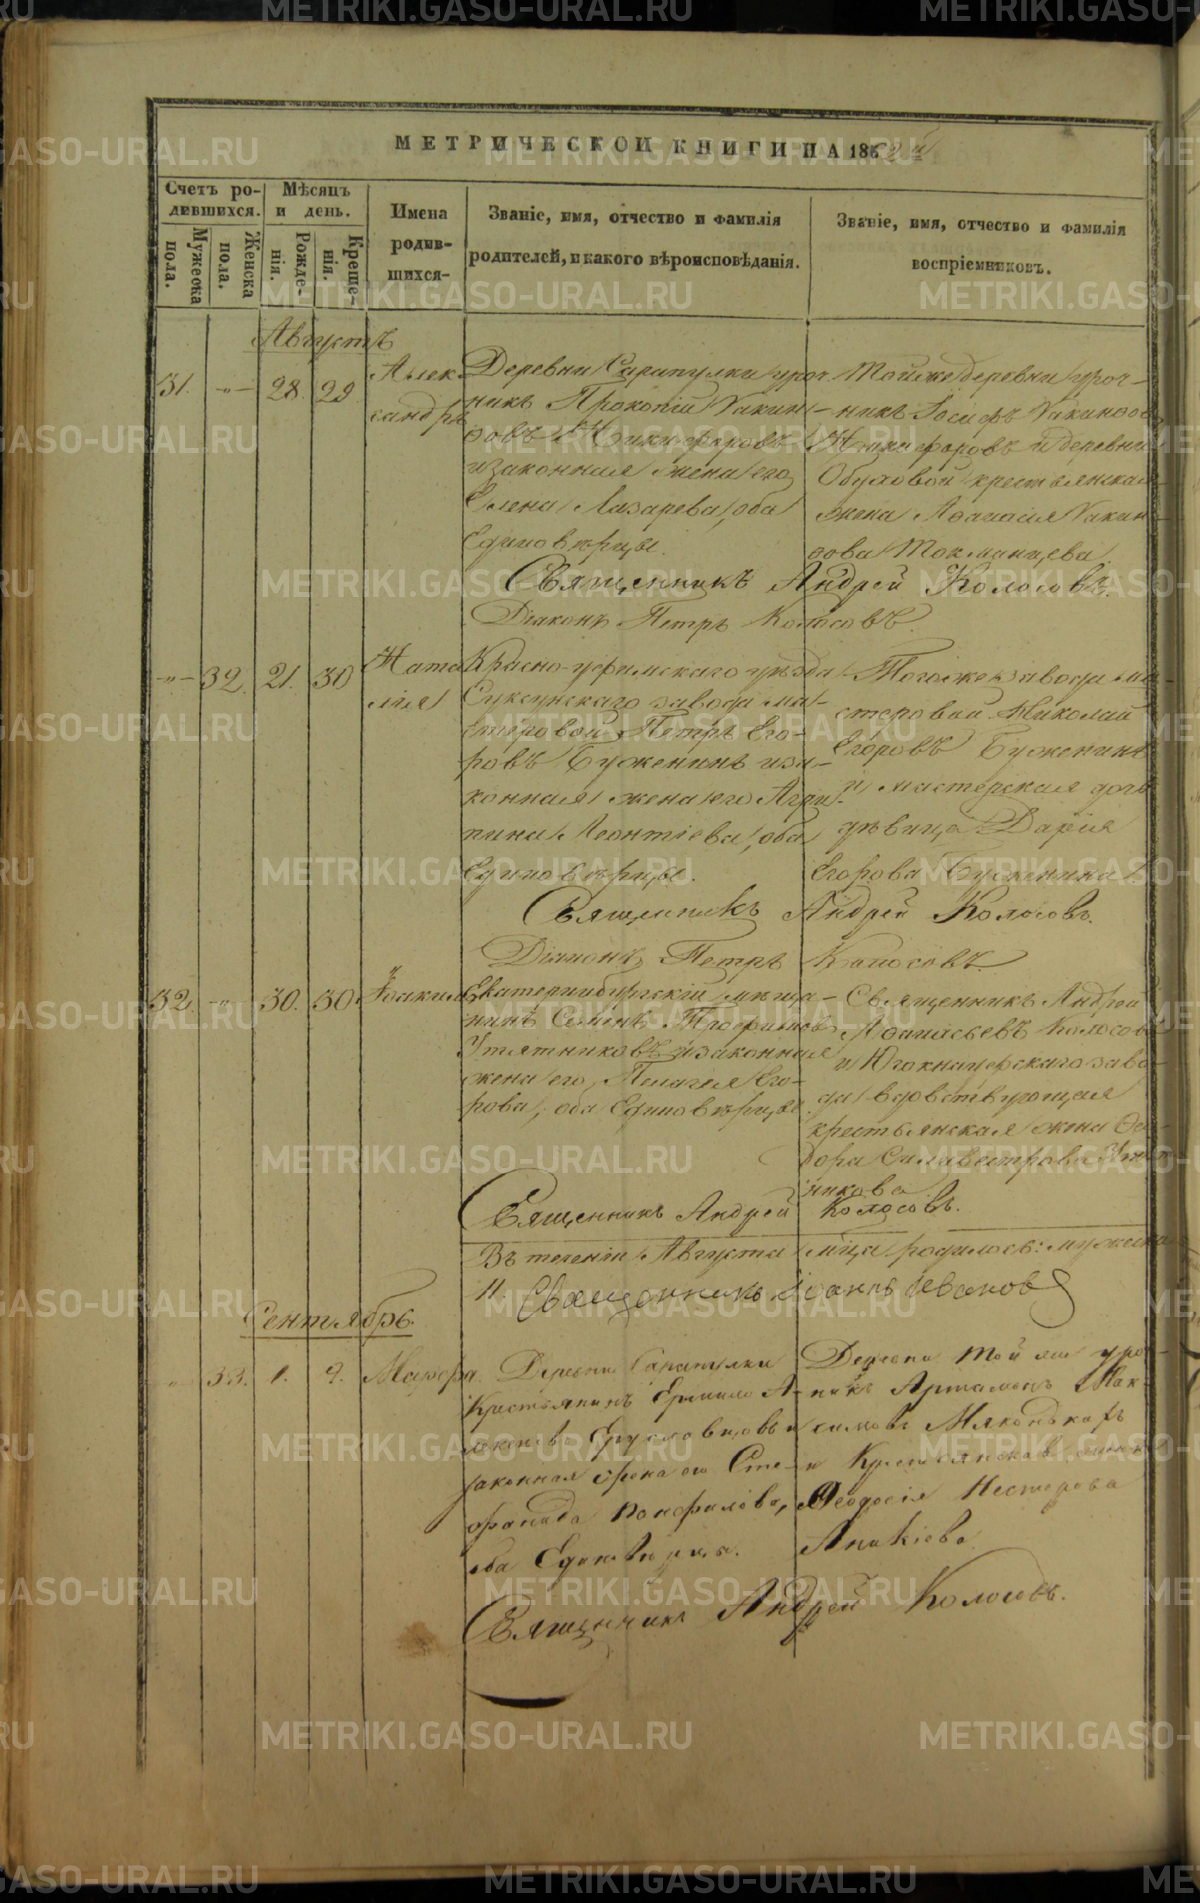 МЕТРИЧЕСКОЙ КНИГИ НА 186
Счетъ ро-
дившихся.
Мѣсяцъ
и день.
Имена
родив-
шихся-
Званіе, имя, отчество и фамилія
родителей, и какого вѣроисповѣданія.
Званіе, имя, отчество и фамилія
воспріемниковъ.
Мужеска
пола.
Женска
пола.
Рожде-
нія.
Креще-
нія.
Августъ
31. -"- 28. 29
Алек-
сандръ
Деревни Сарапулки уроч-
никъ Прокопій Иакин-
ѳовъ Никифоровъ
и законная жена его
Елена Лазарева, оба
Единовѣрцы.
Тойже деревни уроч-
никъ Іосифъ Иакинѳов
Никифоровъ и деревни
Обуховой крестьянская
жена Аѳанасія Иакин-
ѳова Токманцева
Священникъ Андрей Колосовъ.
Діаконъ Петръ Колосовъ.
-"- 32. 21. 30
Ната-
лія
Красноуфимскаго уѣзда
Суксунскаго завода ма-
стеровой Петръ Его-
ровъ Буженинъ и за-
конная жена его Агри-
пина Леонтіева, оба
Единовѣрцы.
Тогоже завода ма-
стеровой Николай
Егоровъ Буженинъ
и мастерская дочь
дѣвица Дарія
Егорова Буженина.
Священникъ Андрей Колосовъ.
Діаконъ Петръ Колосовъ
32. -"- 30. 30.
Іоакимъ
Екатеринбургскій мѣща-
нинъ Семенъ Трофимов
Утятниковъ и законная
жена его, Пелагея Его-
рова, оба Единовѣрцы
Священникъ Андрей
Аѳанасьевъ Колосов
и Югокнауфскаго заво-
да вдовствующая
крестьянская жена Ѳео-
дора Силивестрова Утят-
никова
Священникъ Андрей Колосовъ.
Въ теченіи Августа м-ца родилось: мужеска
11. Священникъ Іоаннъ Ивановъ
Сентябрь.
" 33. 1. 9. Марфа.
Деревни Сарапулки
Крестьянинъ Ермило А-
лексѣевъ Ерусловцовъ и
законная жена его Сте-
фанида Панфилова,
оба Единовѣрцы.
Деревни той же уроч-
никъ Артамонъ Мак-
симовъ Мяконькихъ
и Крестьянская жена
Ѳеодосія Нестерова
Аникіева.
Священникъ Андрей Колосовъ.
METRIKI.GASO-URAL.RU